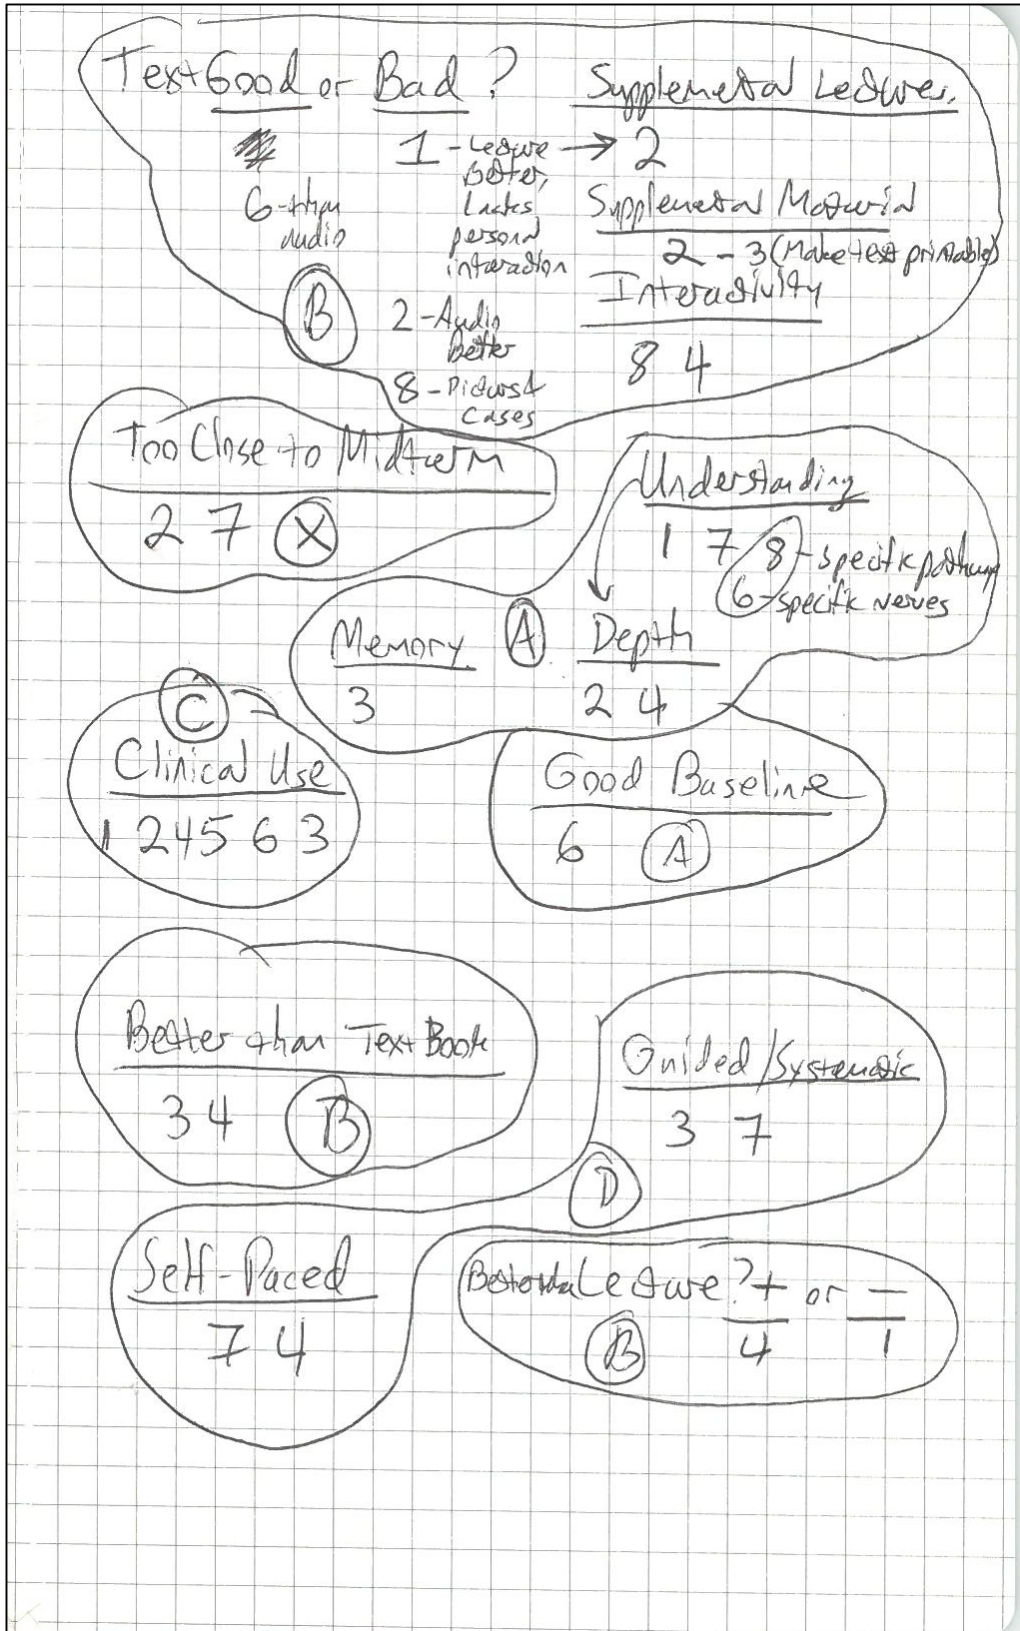 Text Good or Bad? Supplemetal Lecture.
1 - Lecture → 2
Better,
Lacks
personal
interaction
6 - than
audio
Supplemental Material
2 - 3 (Make text printable)
Interactivity
8 4
B
2 - Audio
Better
8 - Pictures &
Cases
Too Close to Midterm
2 7 X
Understanding
1 7 8 - specific pathway
6 - specific nerves
Memory A Depth
3 2 4
C
Clinical Use
1 2 4 5 6 3
Good Baseline
6 A
Better than Text Book
3 4 B
Guided/Systematic
3 7
D
Self-Paced
7 4
Lecture? + or -
B 4 1